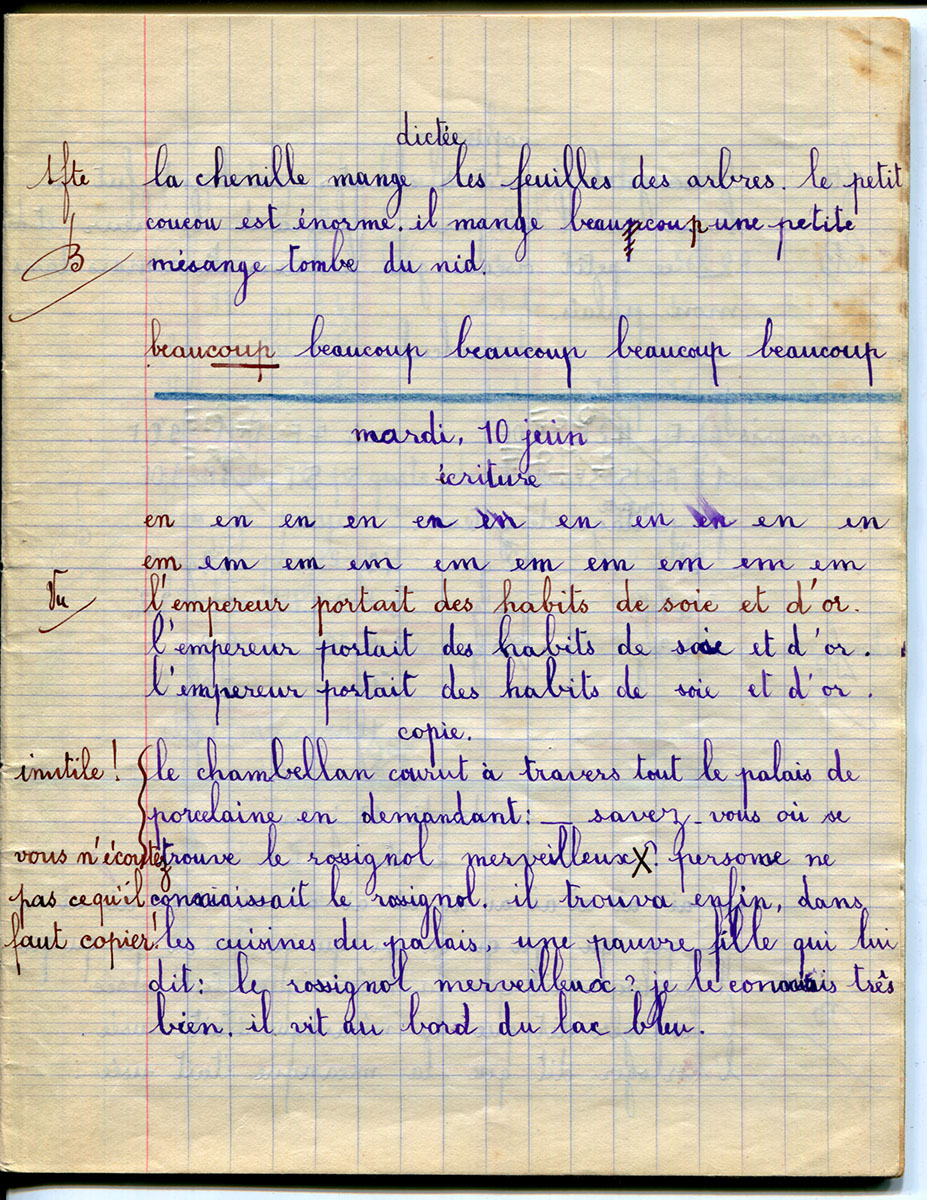 dictée
1 fte la chenille mange les feuilles des arbres. le petit
coucou est énorme. il mange beaucoup une petite
B mésange tombe du nid.
beaucoup beaucoup beaucoup beaucoup beaucoup
mardi, 10 juin
écriture
en en en en en en en en en en en
em em em em em em em em em em
Vu l'empereur portait des habits de soie et d'or.
l'empereur portait des habits de soie et d'or.
l'empereur portait des habits de soie et d'or.
copie.
inutile ! le chambellan courut à travers tout le palais de
porcelaine en demandant : _ savez-vous où se
vous n'écoutez trouve le rossignol merveilleux X ? personne ne
pas ce qu'il connaissait le rossignol. il trouva enfin, dans
faut copier ! les cuisines du palais, une pauvre fille qui lui
dit : le rossignol merveilleux ? je le connais très
bien. il vit au bord du lac bleu.